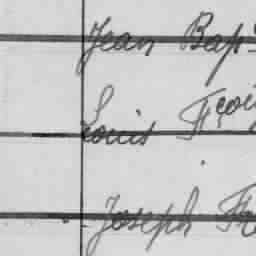 Jean Bap
Louis Fçois
Joseph Fr